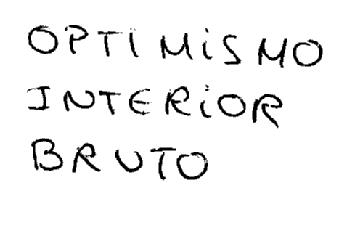 OPTIMISMO
INTERIOR
BRUTO